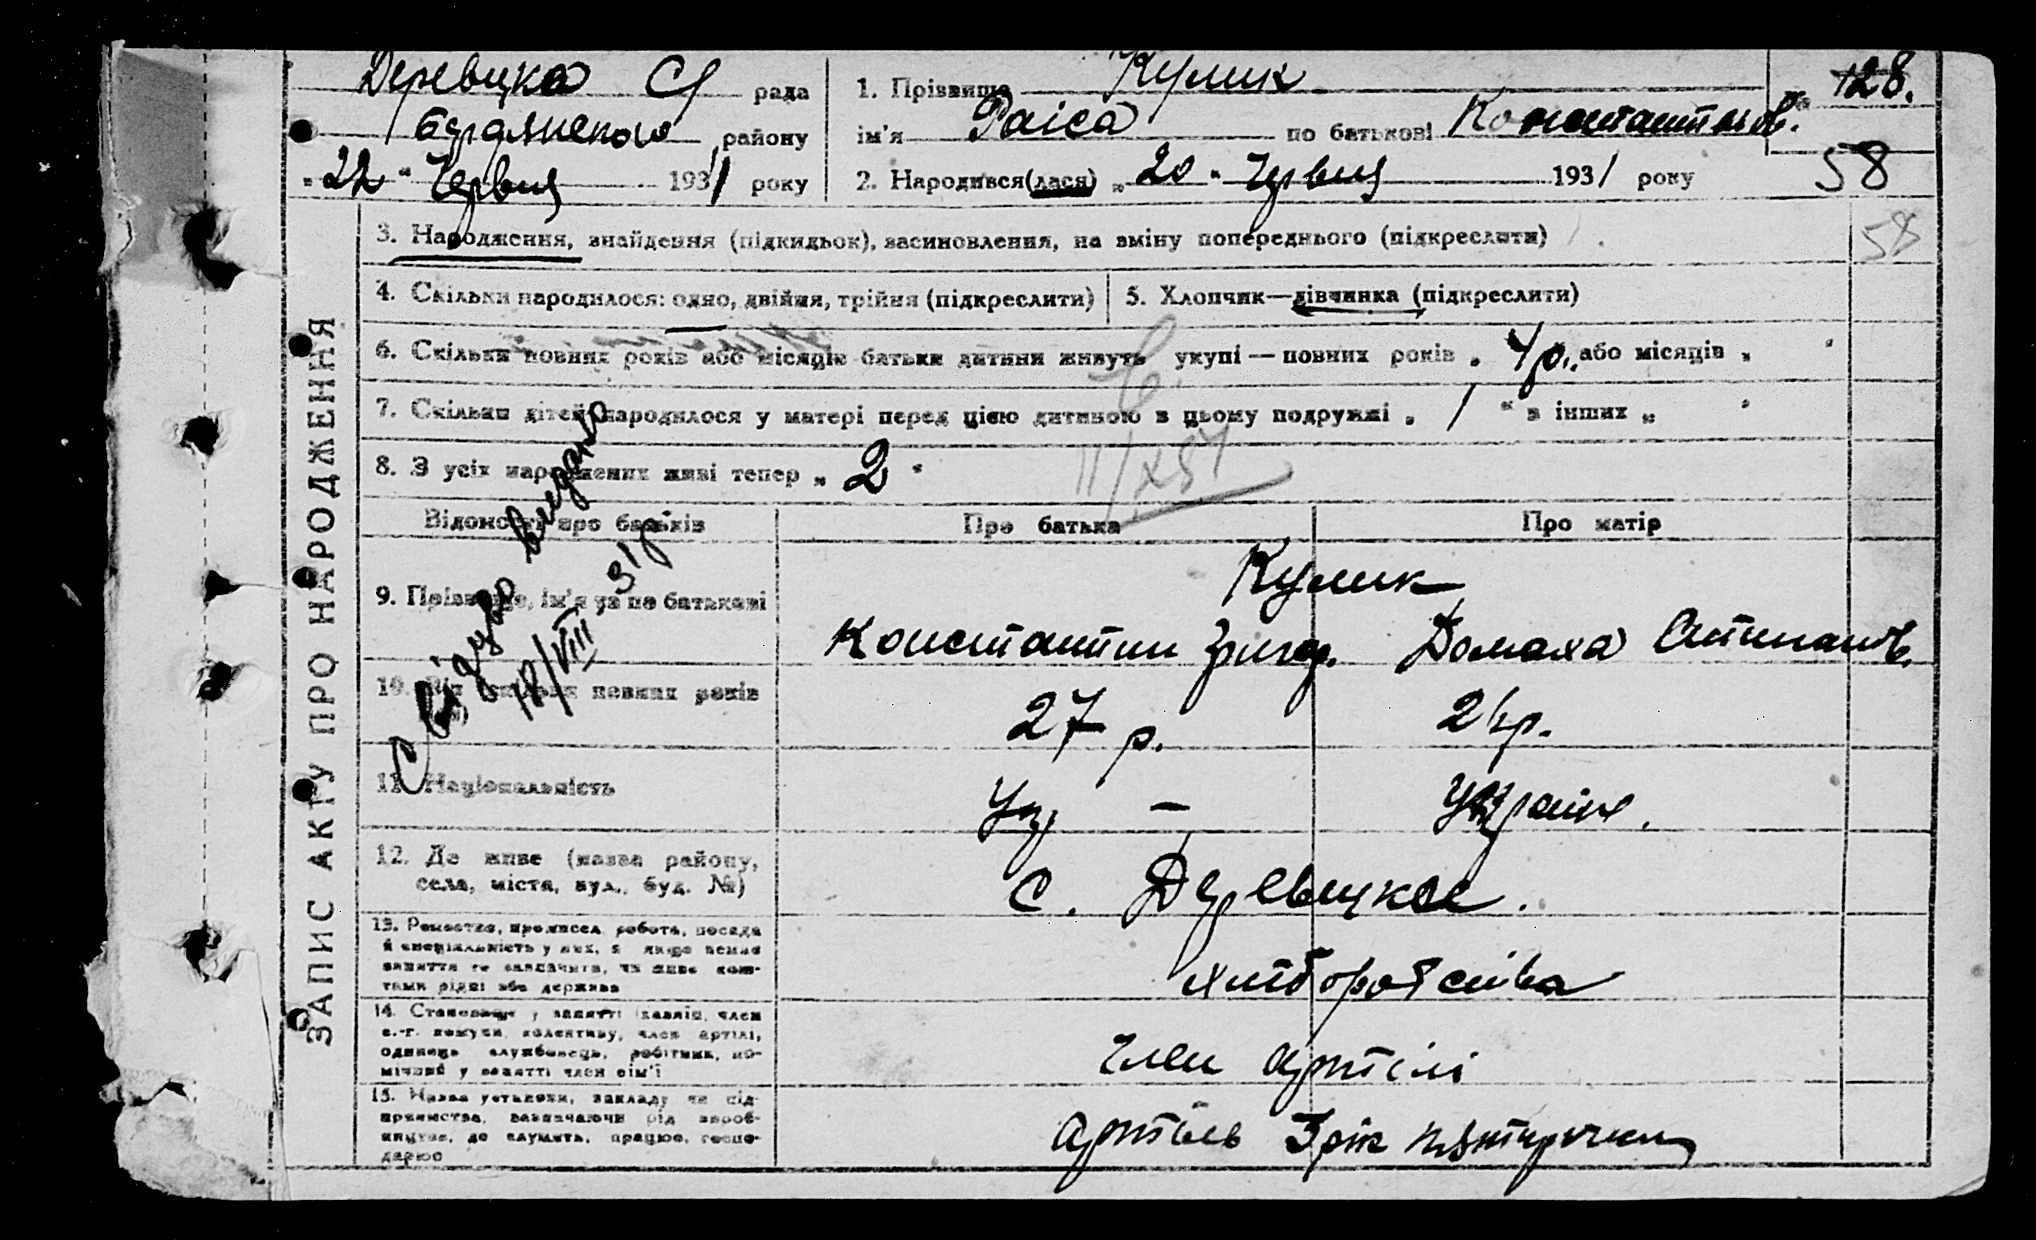 Деревицка СР рада
1. Прізвище Кулик
№ 128.
району
ім'я Раїса по батькові Константинов.
58
„22“ Червня 1931 року
2. Народився(лася) „20“ Червня 1931 року
58
ЗАПИС АКТУ ПРО НАРОДЖЕННЯ
3. Народження, знайдення (підкидьок), засиновлення, на зміну попереднього (підкреслити)
4. Скільки народилося: одно, двійня, трійня (підкреслити)
5. Хлопчик—дівчинка (підкреслити)
6. Скільки повних років або місяців батьки дитини живуть укупі — повних років „ 4 р. або місяців „ “
7. Скільки дітей народилося у матері перед цією дитиною в цьому подружжі „ 1 “ в інших „ “
8. З усіх народжених живі тепер „ 2 “
Свідоцво видано
18/VIII 31 р.
Відомості про батьків
Про батька
Про матір
9. Прізвище, ім'я та по батькові
Кулик
Константин Григор. Домаха Степанов.
10. Вік скільки повних років
27 р.
11. Національність
Укр
Україн.
12. Де живе (назва району,
села, міста, вул., буд. №)
с. Деревицкое.
13. Ремество, промисел, робота, посада
й спеціяльність у них, а якщо немає
заняття то зазначити, чи живе кош-
тами рідні або держави
хліборобства
14. Становище у занятті (хазяїн, член
с.-г. комуни, колективу, член артілі,
одинець службовець, робітник, по-
мічний у занятті член сім'ї
член артілі
15. Назва установи, закладу чи під-
приємства, зазначаючи рід вироб-
ництва, де служить, працює, госпо-
дарює
артіль 3 рік пятирічки